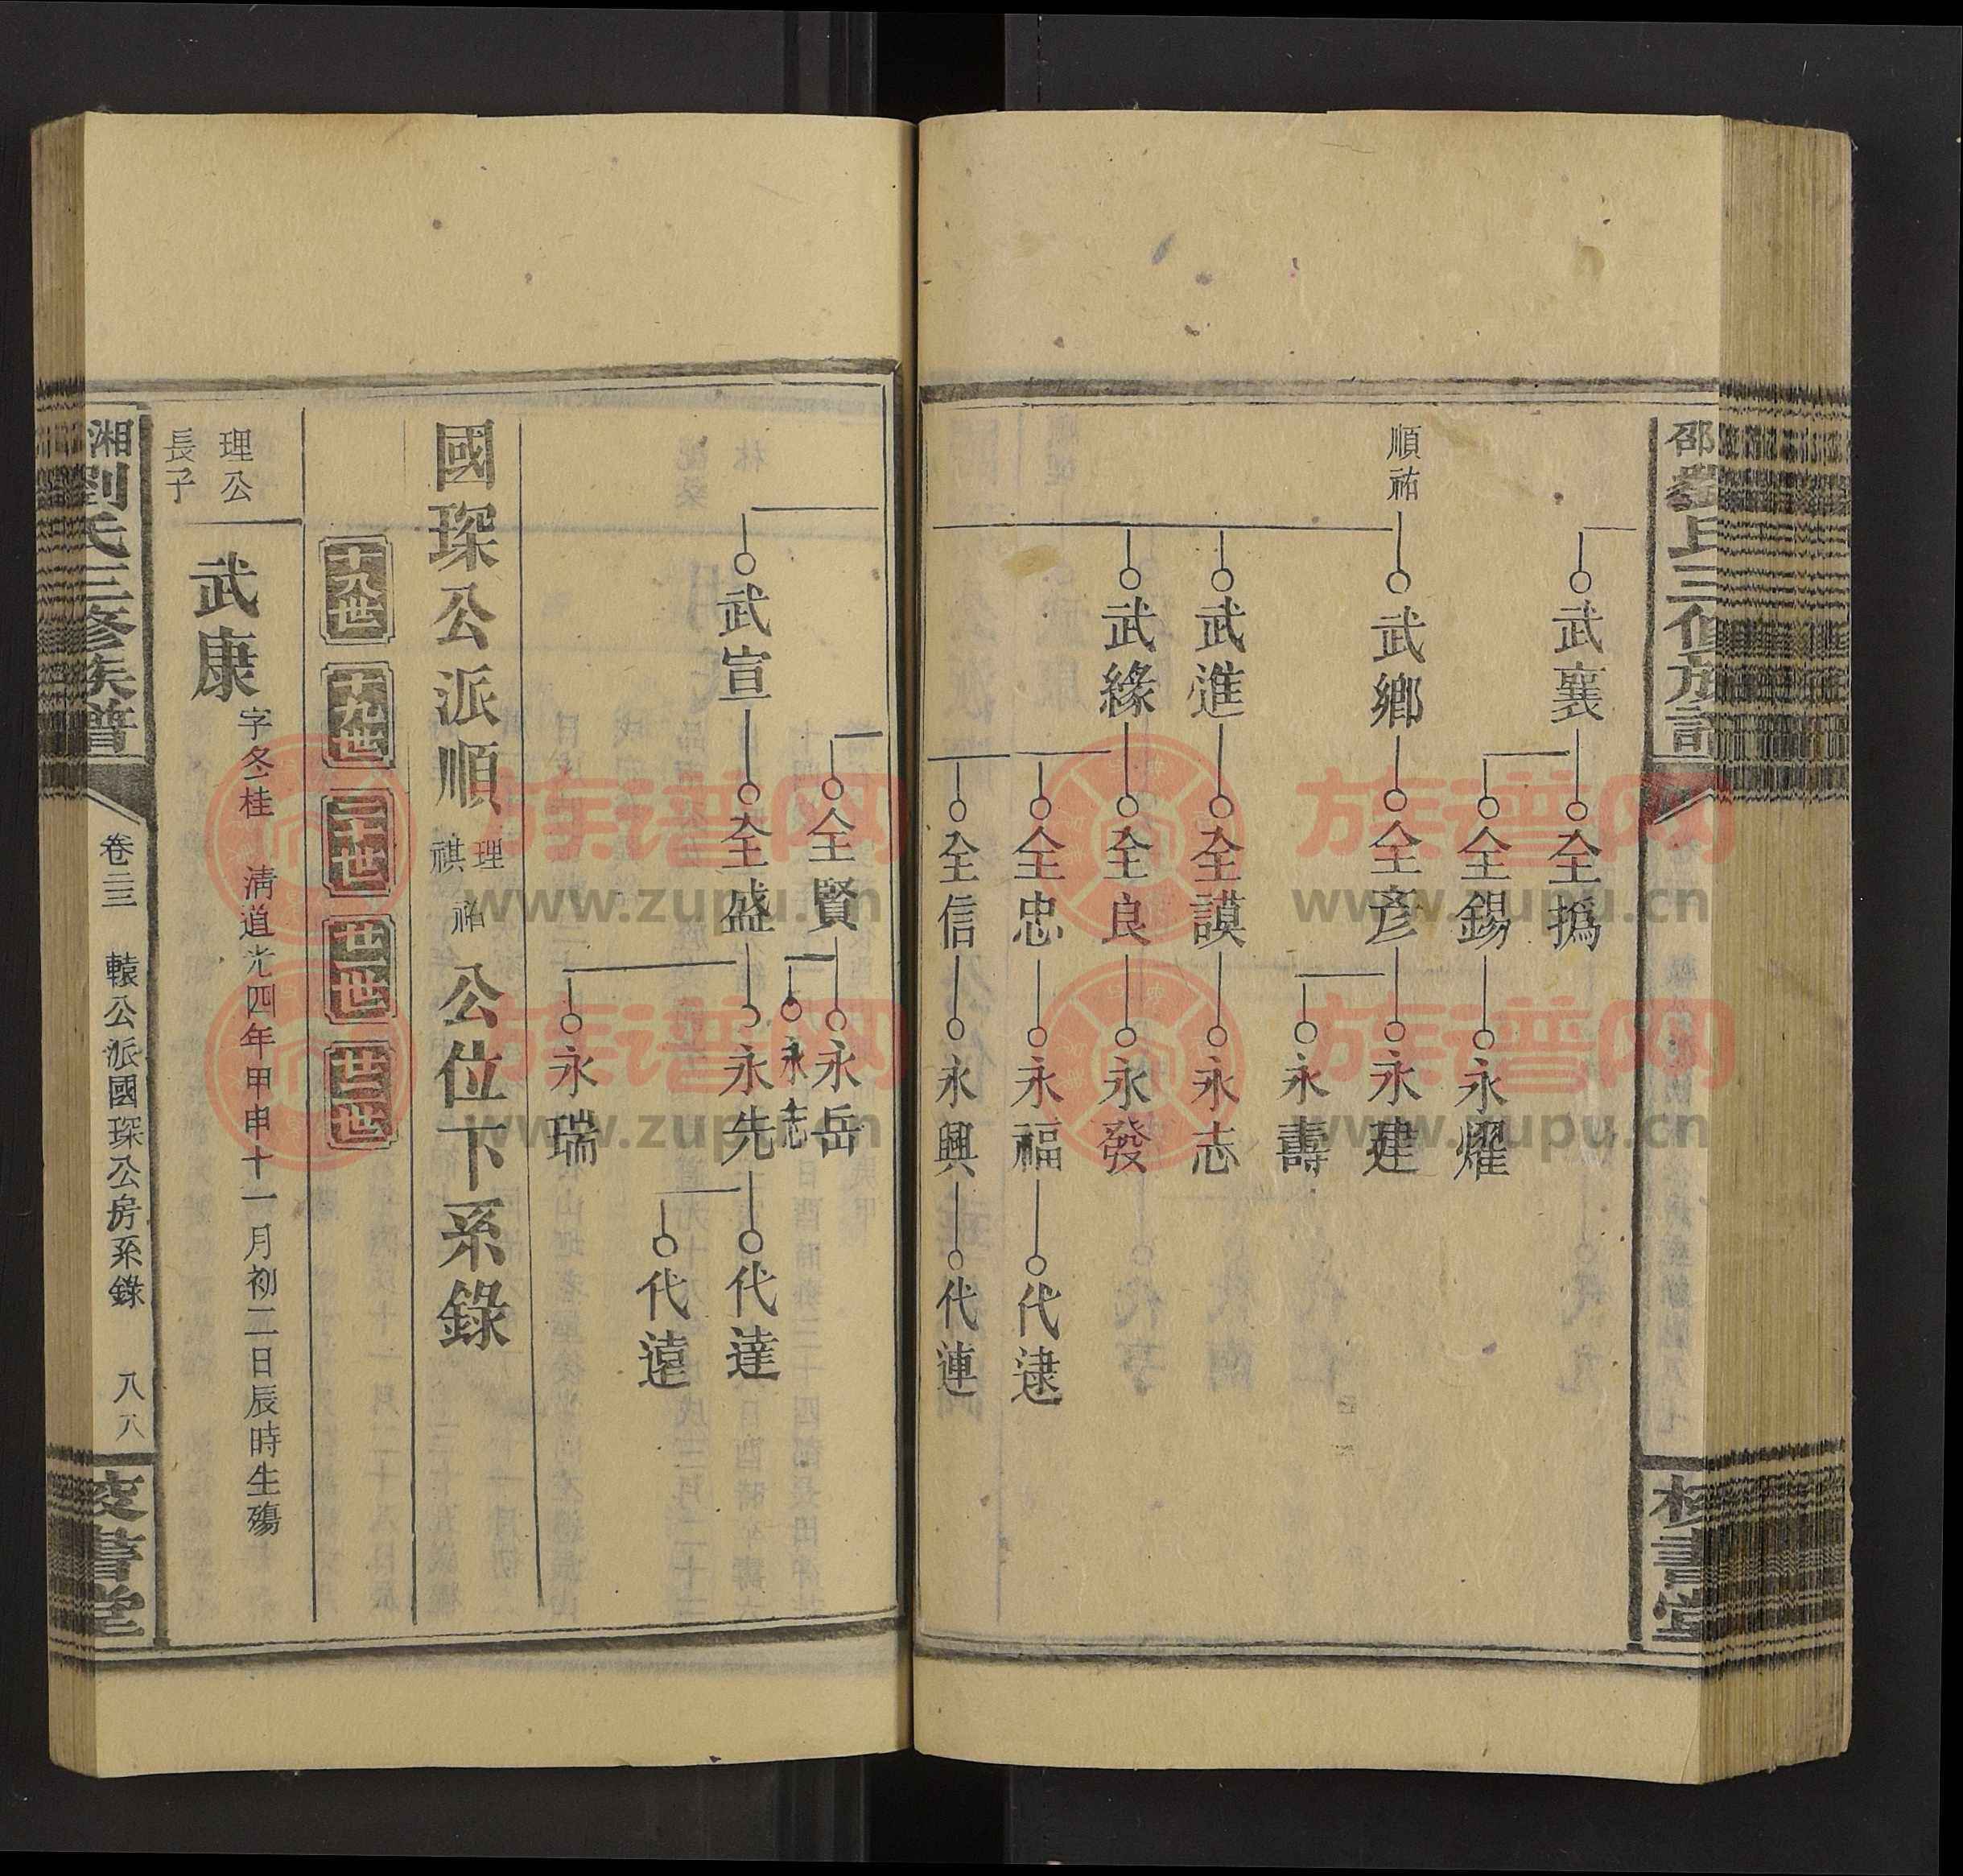 邵劉氏三修族譜
武襄
全撝
全錫
永燿
順祐
武鄉
全彦
永建
永壽
武進
全謨
永志
武緣
全良
永發
全忠
永福
代逮
全信
永興
代連
全賢
永岳
永志
武宣
全盛
永先
代達
代遠
永瑞
國琛公派順理祺祐公位下系錄
十八世
十九世
二十世
廿一世
廿二世
理公
長子
武康
字冬桂 清道光四年甲申十一月初二日辰時生殤
湘劉氏三修族譜
卷二三 轅公派國琛公房系錄 八八
校書堂
族谱网
www.zupu.cn
族谱网
www.zupu.cn
族谱网
www.zupu.cn
族谱网
www.zupu.cn